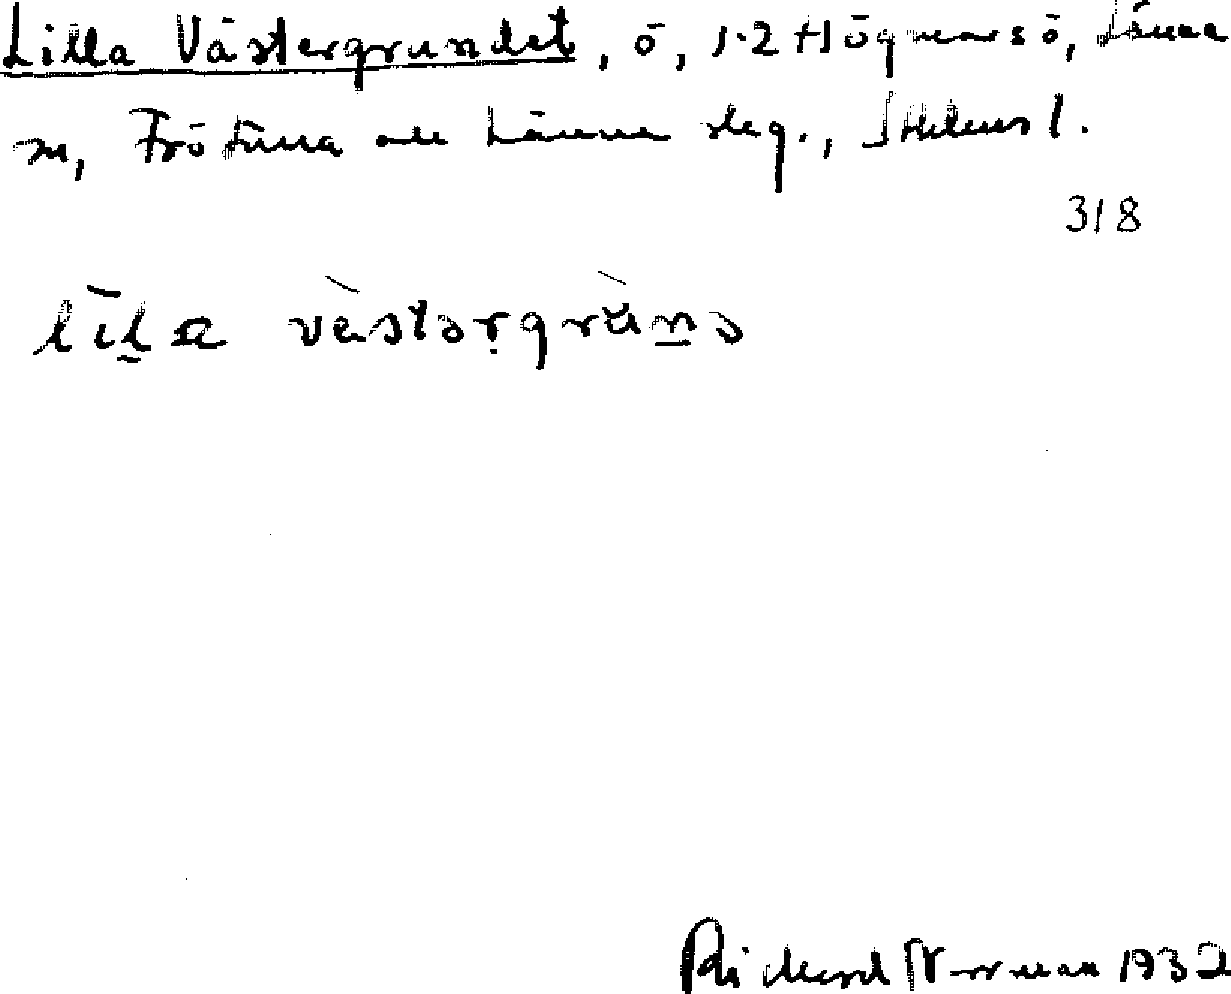 Lilla Västergrundet, ö, 1.2 Högmarsö, Länna
sn, Frötuna och Länna skg., Sthlms l.
318
lila västərgrunə
Rickard Norrman 1932